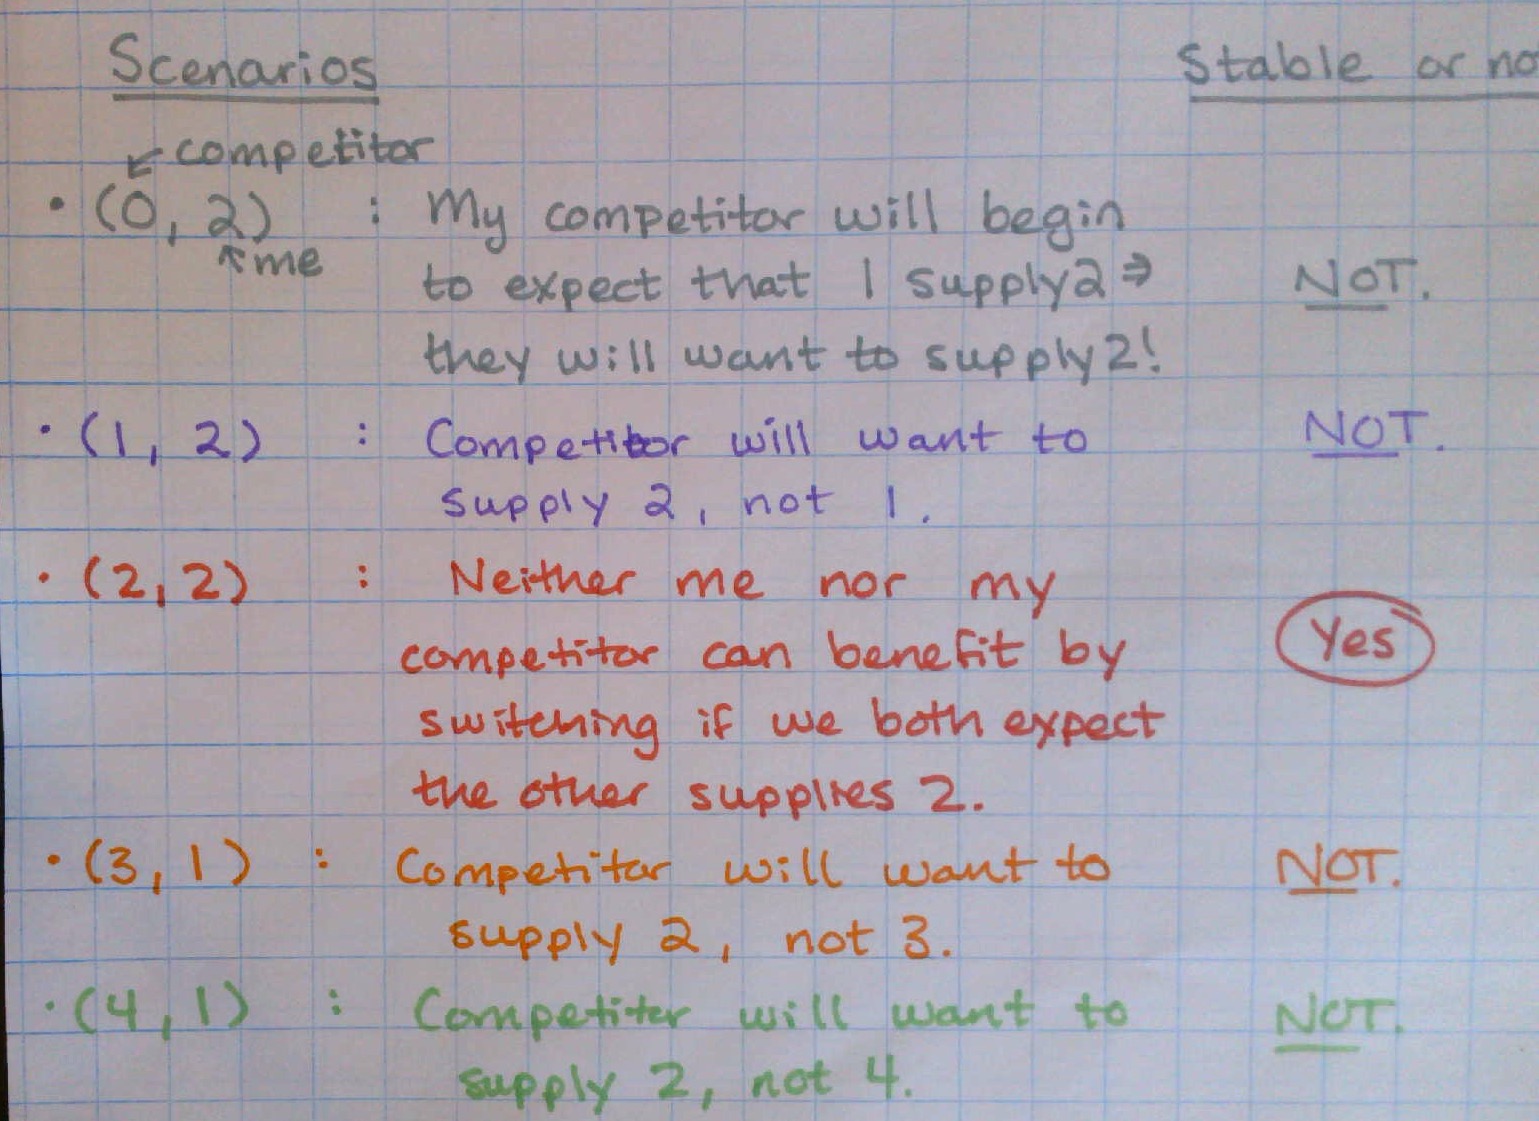 Scenarios Stable or no
↙ competitor
• (0, 2) : My competitor will begin
↖ me to expect that I supply 2 ⇒ NOT.
they will want to supply 2!
• (1, 2) : Competitor will want to NOT.
supply 2, not 1.
• (2, 2) : Neither me nor my
competitor can benefit by Yes
switching if we both expect
the other supplies 2.
• (3, 1) : Competitor will want to NOT.
supply 2, not 3.
• (4, 1) : Competitor will want to NOT.
supply 2, not 4.